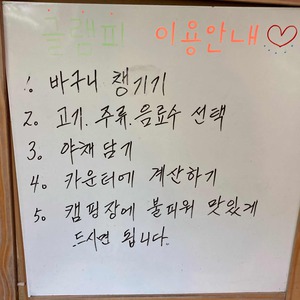 글램피 이용안내 ♡
1. 바구니 챙기기
2. 고기. 주류. 음료수 선택
3. 야채 담기
4. 카운터에 계산하기
5. 캠핑장에 불피워 맛있게
드시면 됩니다.